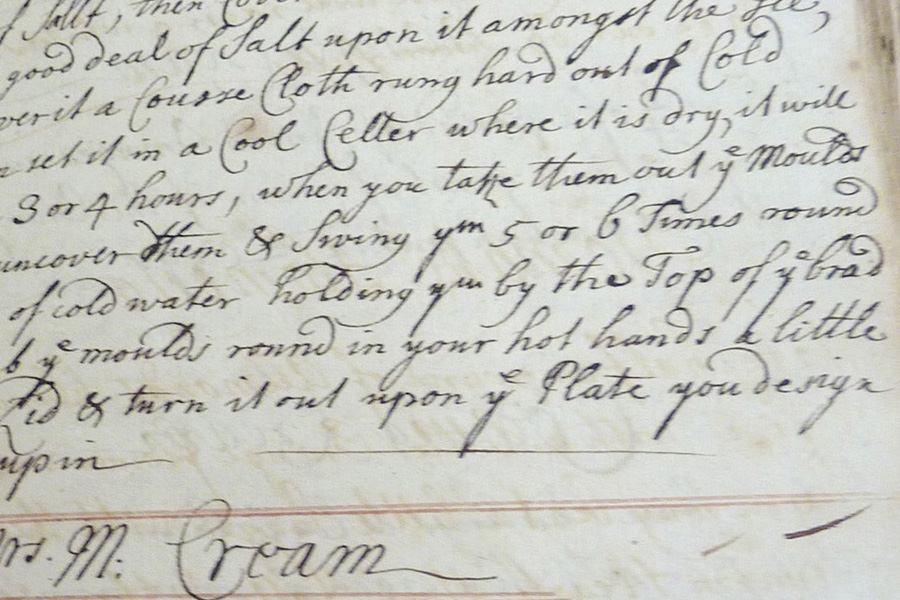 f Sallt, then Cover
good deal of Salt upon it amongst the Ice,
ver it a Course Cloth rung hard out of Cold
n set it in a Cool Celler where it is dry, it will
3 or 4 hours, when you take them out yͤ Moulds
uncover them & Swing yᵐ 5 or 6 Times round
of cold water holding yᵐ by the Top of yͤ brad
b yͤ moulds round in your hot hands a little
Lid & turn it out upon yͤ Plate you design
up in
rs. M. Cream